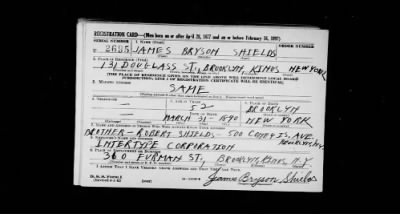 REGISTRATION CARD—(Men born on or after April 28, 1877 and on or before February 16, 1897)
SERIAL NUMBER 1. NAME (Print) ORDER NUMBER
U 2685 JAMES BRYSON SHIELDS
2. PLACE OF RESIDENCE (Print)
131 DOUGLASS ST., BROOKLYN, KINGS NEW YORK
(THE PLACE OF RESIDENCE GIVEN ON THE LINE ABOVE WILL DETERMINE LOCAL BOARD
JURISDICTION; LINE 2 OF REGISTRATION CERTIFICATE WILL BE IDENTICAL)
3. MAILING ADDRESS
SAME
4. TELEPHONE 5. AGE IN YEARS 6. PLACE OF BIRTH
— 52 BROOKLYN
DATE OF BIRTH
— MARCH 31 - 1890 NEW YORK
7. NAME AND ADDRESS OF PERSON WHO WILL ALWAYS KNOW YOUR ADDRESS
BROTHER - ROBERT SHIELDS - 500 CONEY IS. AVE. BROOKLYN, N.Y.
8. EMPLOYER'S NAME AND ADDRESS
INTERTYPE CORPORATION
9. PLACE OF EMPLOYMENT OR BUSINESS
360 FURMAN ST., BROOKLYN, KINGS N.Y.
I AFFIRM THAT I HAVE VERIFIED ABOVE ANSWERS AND THAT THEY ARE TRUE.
D. S. S. Form 1 James Bryson Shields